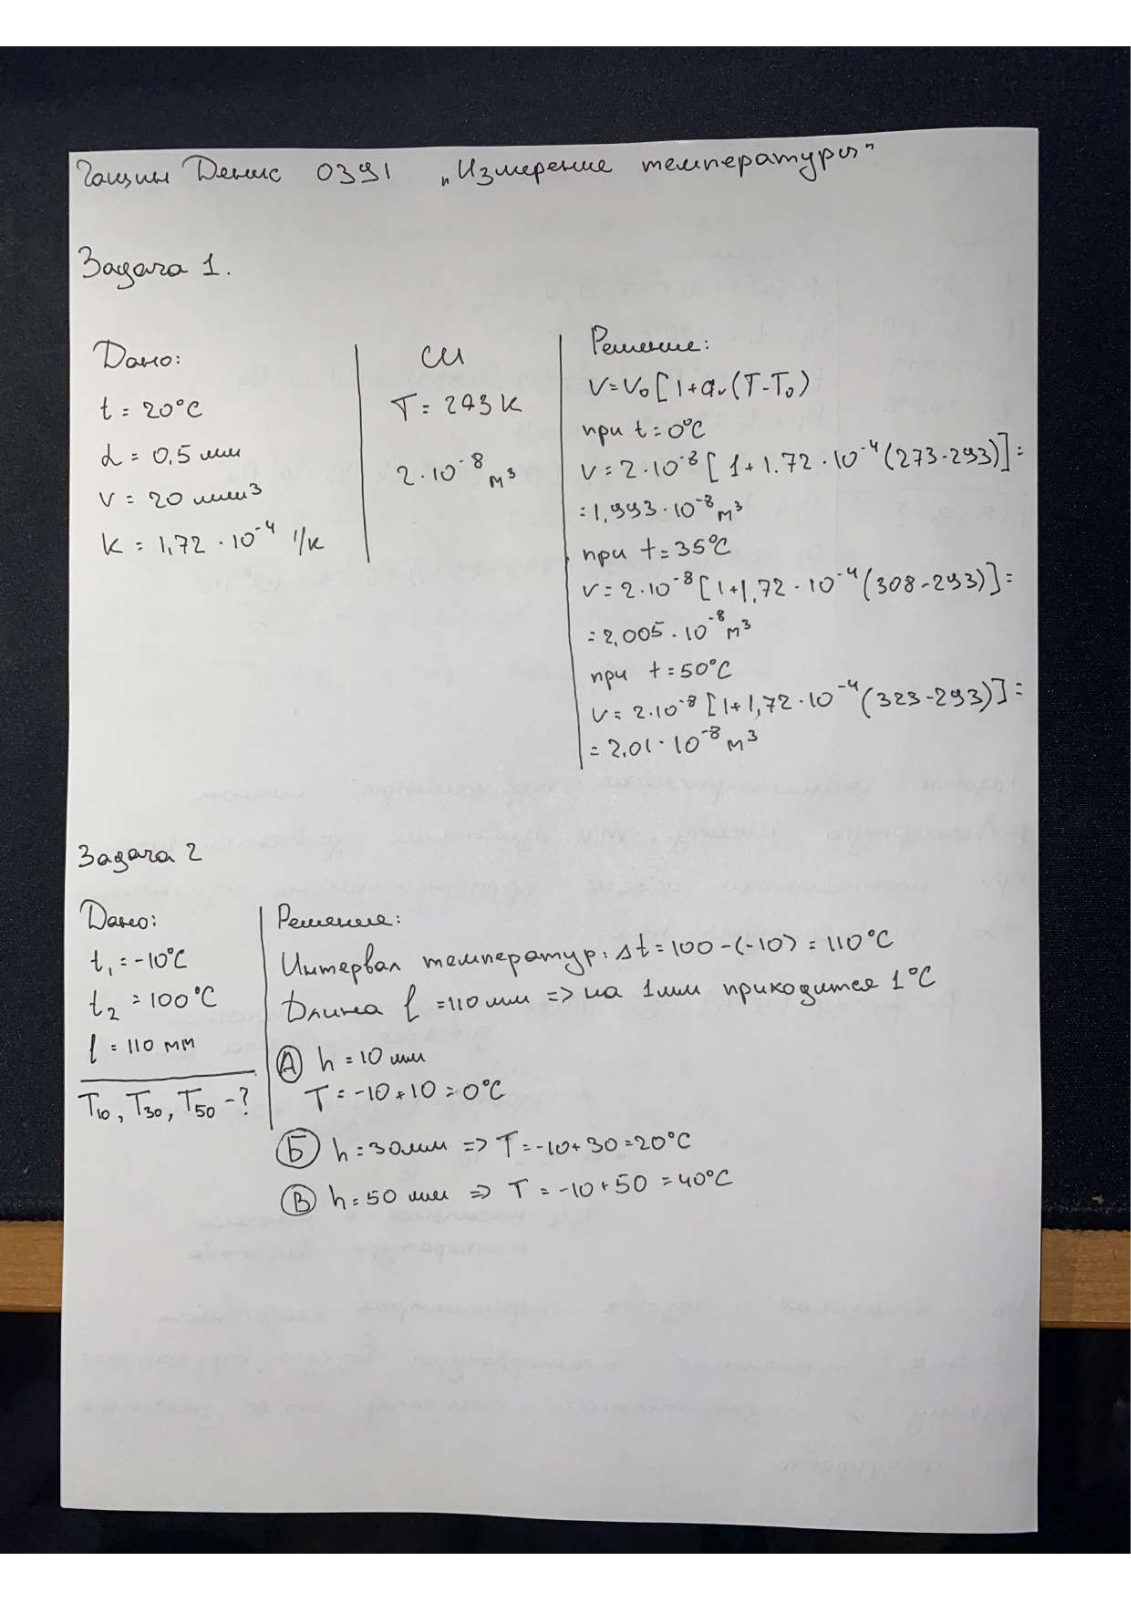 Гащин Денис 0391 „Измерение температуры"
Задача 1.
Дано:
t = 20°C
d = 0,5 мм
V = 20 мм³
K = 1,72 · 10⁻⁴ 1/к
СИ
T = 293 K
2 · 10⁻⁸ м³
Решение:
V = V₀ [ 1 + αᵥ (T - T₀)
при t = 0°C
V = 2 · 10⁻⁸ [ 1 + 1.72 · 10⁻⁴ (273 - 293)] =
= 1,993 · 10⁻⁸ м³
при t = 35°C
V = 2 · 10⁻⁸ [ 1 + 1,72 · 10⁻⁴ (308 - 293)] =
= 2,005 · 10⁻⁸ м³
при t = 50°C
V = 2 · 10⁻⁸ [ 1 + 1,72 · 10⁻⁴ (323 - 293)] =
= 2,01 · 10⁻⁸ м³
Задача 2
Дано:
t₁ = -10°C
t₂ = 100°C
l = 110 мм
T₁₀, T₃₀, T₅₀ - ?
Решение:
Интервал температур: Δt = 100 - (-10) = 110°C
Длина l = 110 мм => на 1 мм приходится 1°C
А h = 10 мм
T = -10 + 10 = 0°C
Б h = 30 мм => T = -10 + 30 = 20°C
В h = 50 мм => T = -10 + 50 = 40°C